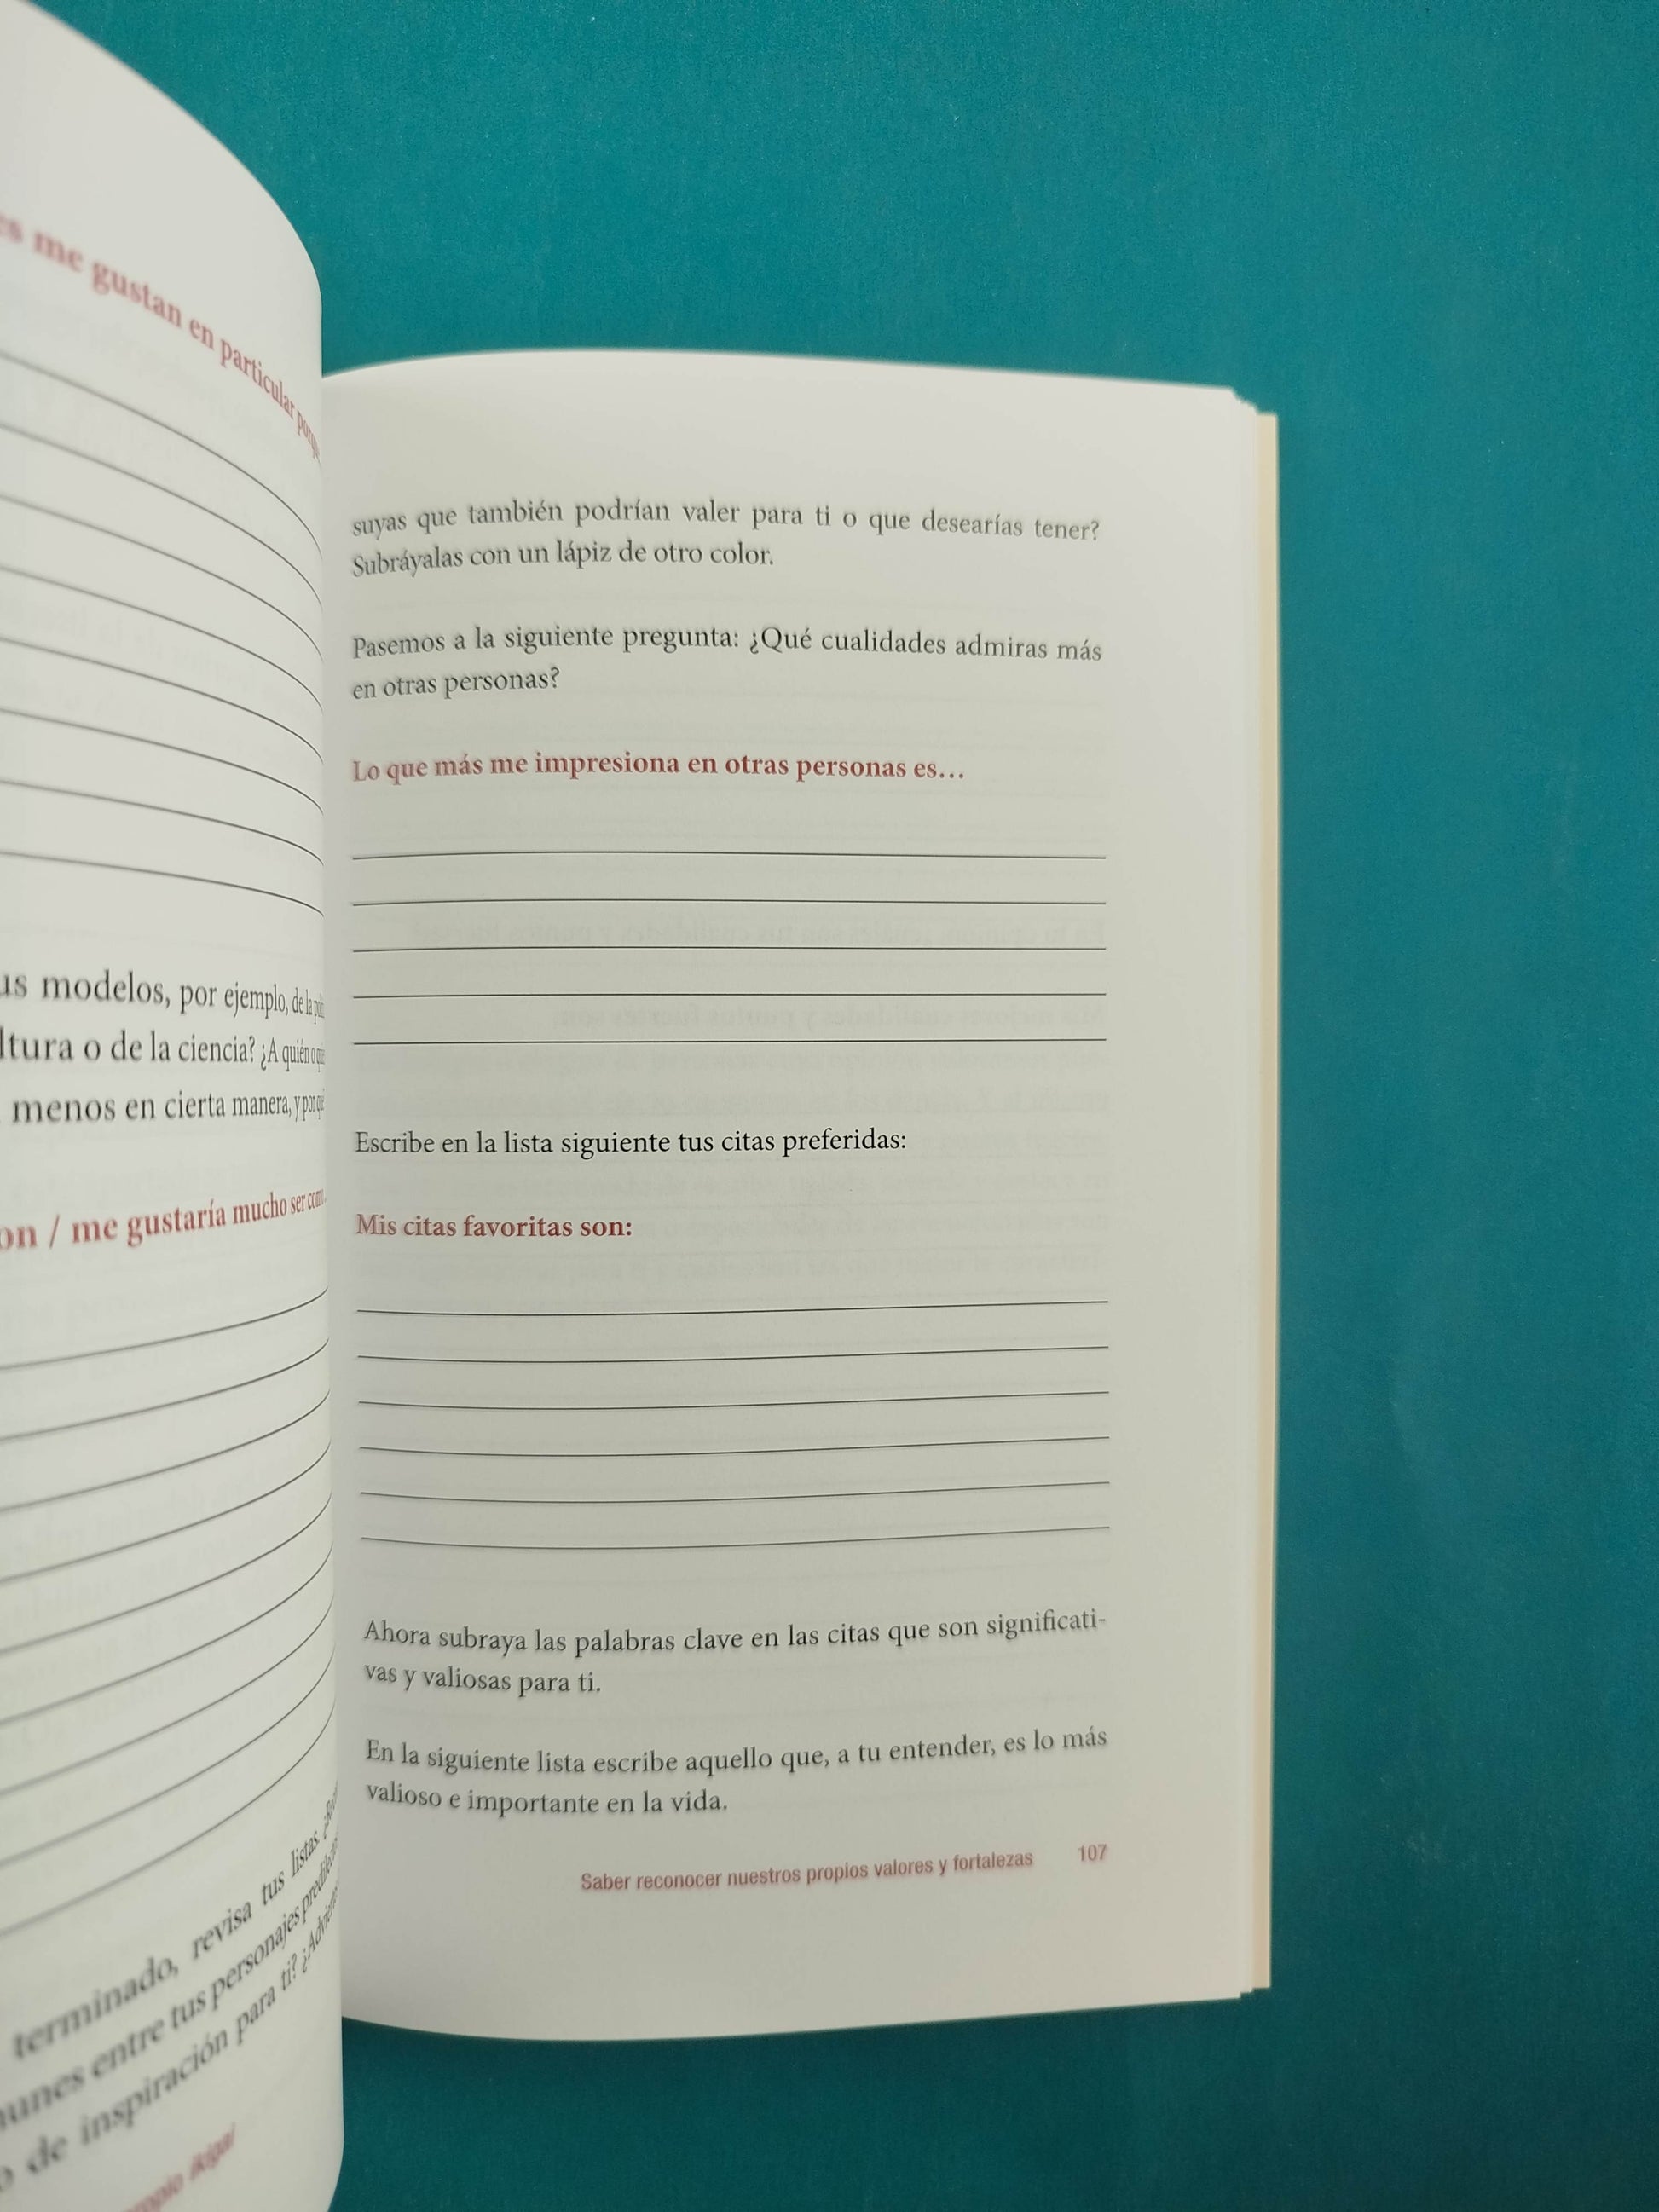 me gustan en particular
us modelos, por ejemplo, de la
ltura o de la ciencia? ¿A quién o
menos en cierta manera, y por qué
on / me gustaría mucho ser como
terminado, revisa tus listas.
unes entre tus personajes predilectos
de inspiración para ti?
propio ikigai
suyas que también podrían valer para ti o que desearías tener?
Subráyalas con un lápiz de otro color.
Pasemos a la siguiente pregunta: ¿Qué cualidades admiras más
en otras personas?
Lo que más me impresiona en otras personas es…
Escribe en la lista siguiente tus citas preferidas:
Mis citas favoritas son:
Ahora subraya las palabras clave en las citas que son significati-
vas y valiosas para ti.
En la siguiente lista escribe aquello que, a tu entender, es lo más
valioso e importante en la vida.
Saber reconocer nuestros propios valores y fortalezas 107